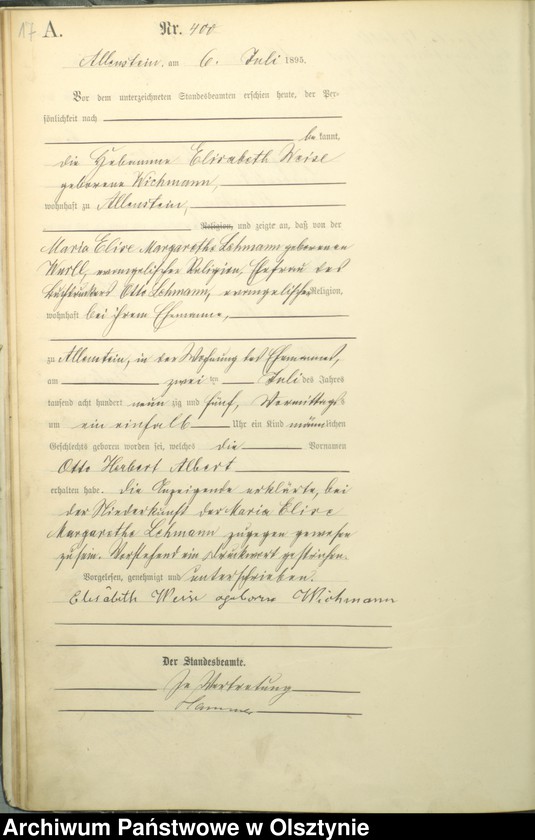 17 A. Nr. 400
Allenstein. am 6. Juli 1895.
Vor dem unterzeichneten Standesbeamten erschien heute, der Per-
sönlichkeit nach
be kannt,
die Hebamme Elisabeth Weise
geborene Wichmann,
wohnhaft zu Allenstein,
Religion, und zeigte an, daß von der
Maria Elise Margarethe Lehmann geborenen
evangelischer Religion, Ehefrau des
Otto Lehmann, evangelischer Religion,
wohnhaft bei ihrem Ehemanne,
zu Allenstein, in der Wohnung des Ehemannes,
am zwei ten Juli des Jahres
tausend acht hundert neun zig und fünf, Vormittags
um ein einhalb Uhr ein Kind männlichen
Geschlechts geboren worden sei, welches die Vornamen
Otto Herbert Albert
erhalten habe. Die Anzeigende erklärte, bei
der Niederkunft der Maria Elise
Margarethe Lehmann zugegen gewesen
zu sein. Vorstehend ein Druckwort gestrichen.
Vorgelesen, genehmigt und unterschrieben.
Elisabeth Weise geborne Wichmann
Der Standesbeamte.
In Vertretung
Archiwum Państwowe w Olsztynie